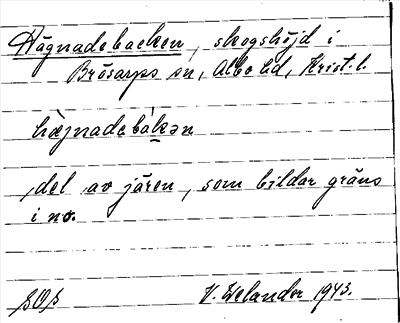 Hägnadebacken, skogshöjd i
Brösarps sn, Albo hd, Krist. l.
hä̀jnadebákən
del av jären, som bildar gräns
i no.
SOS V. Welander 1943.